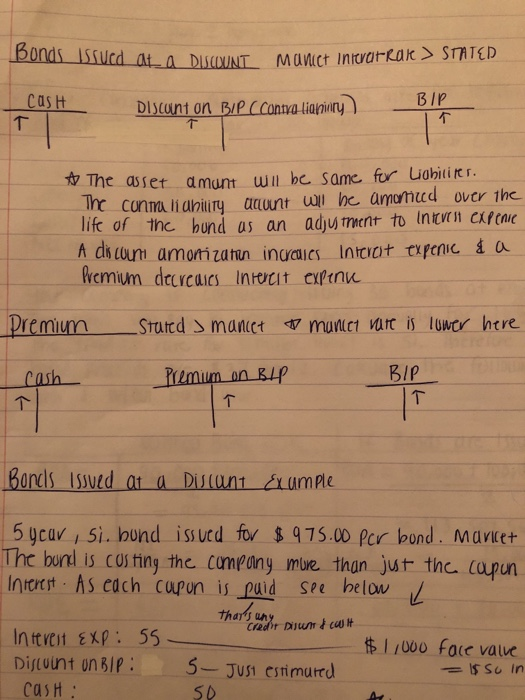 Bonds Issued at a DISCOUNT Market Interest Rate > STATED
Cash Discount on B/P (Contra liability) B/P
↑ ↑ ↑
☆ The asset amount will be same for Liabilities.
The contra liability account will be amortized over the
life of the bond as an adjustment to Interest expense
A discount amortization increases Interest expense & a
Premium decreases Interest expense
Premium Stated > market ☆ market rate is lower here
Cash Premium on B/P B/P
↑ ↑ ↑
Bonds Issued at a Discount Example
5 year, 5%. bond issued for $975.00 per bond. Market
The bond is costing the company more than just the coupon
Interest. As each cupon is paid see below ↙
that's why
credit Discount & cash
Interest Exp: 55 $1,000 face value
Discount on B/P: 5 — Just estimated = $50 in
Cash: 50